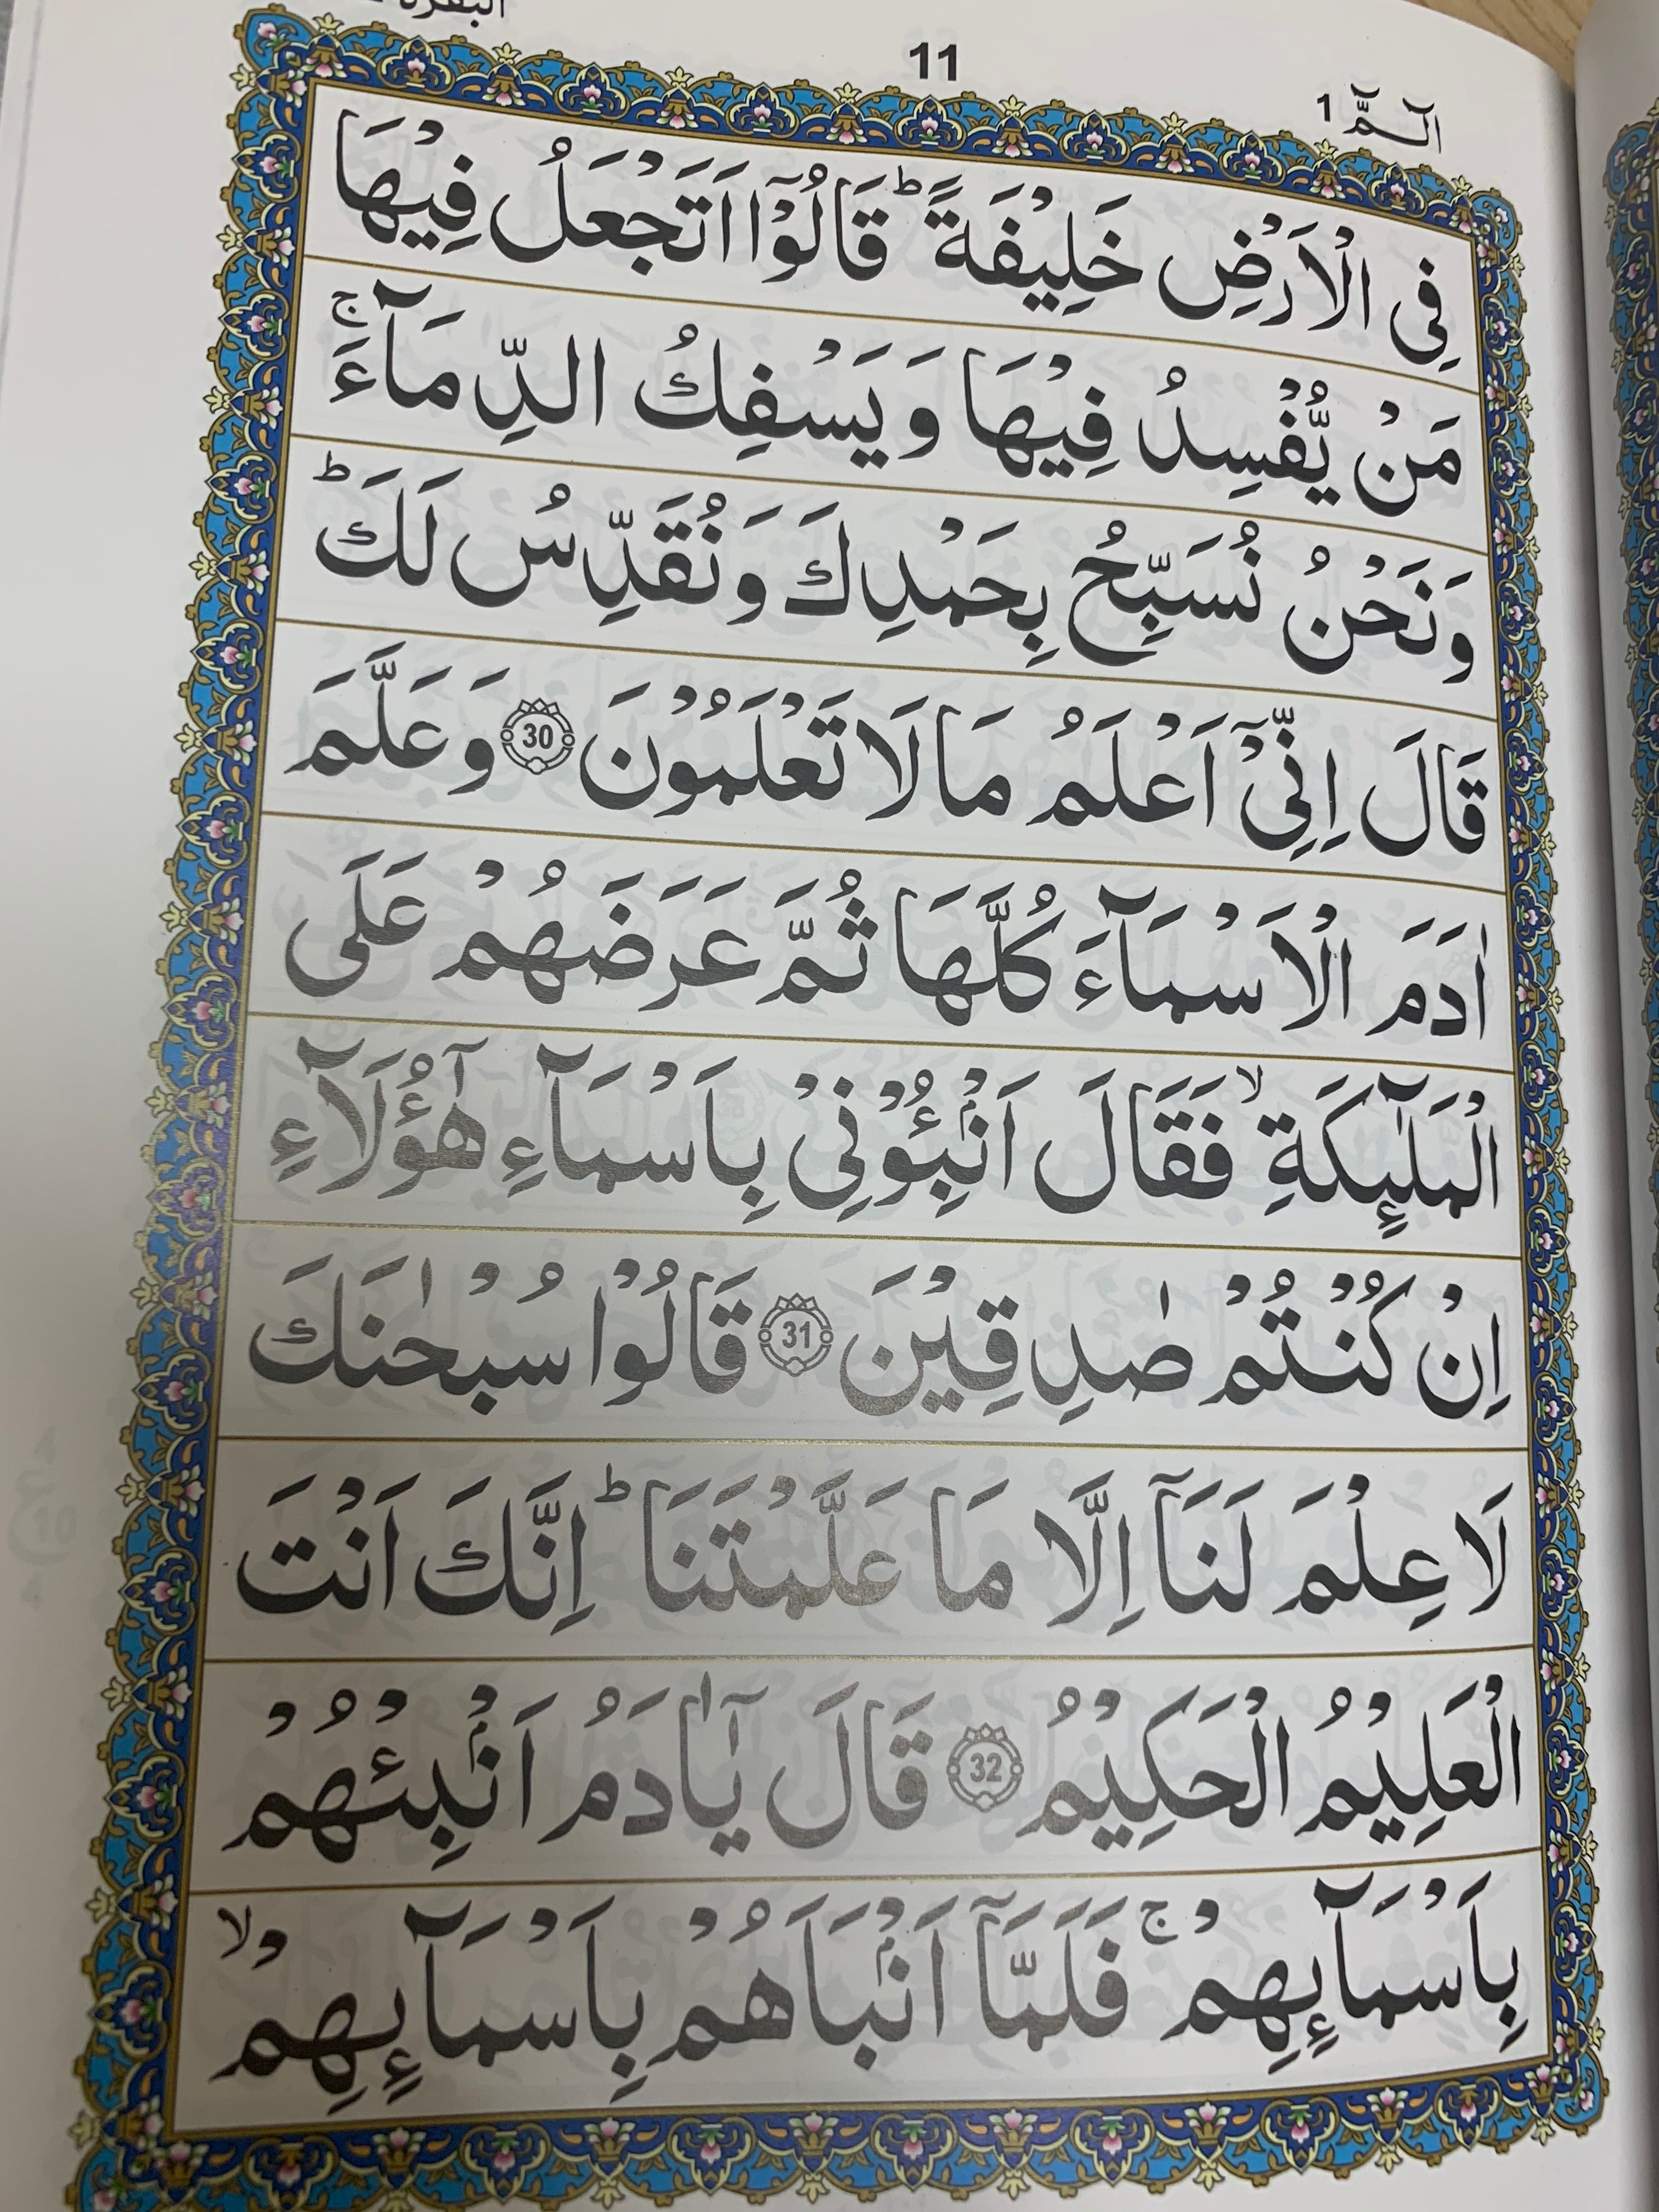 البقرة
11
الٓمّٓ 1
فِي الْاَرْضِ خَلِيْفَةً ؕ قَالُوْۤا اَتَجْعَلُ فِيْهَا
مَنْ يُّفْسِدُ فِيْهَا وَيَسْفِكُ الدِّمَآءَ ۚ
وَنَحْنُ نُسَبِّحُ بِحَمْدِكَ وَنُقَدِّسُ لَكَ ؕ
قَالَ اِنِّيْۤ اَعْلَمُ مَا لَا تَعْلَمُوْنَ 30 وَعَلَّمَ
اٰدَمَ الْاَسْمَآءَ كُلَّهَا ثُمَّ عَرَضَهُمْ عَلَى
الْمَلٰٓئِكَةِ ۙ فَقَالَ اَنْۢبِـُٔوْنِيْ بِاَسْمَآءِ هٰٓؤُلَآءِ
اِنْ كُنْتُمْ صٰدِقِيْنَ 31 قَالُوْا سُبْحٰنَكَ
لَا عِلْمَ لَنَاۤ اِلَّا مَا عَلَّمْتَنَا ؕ اِنَّكَ اَنْتَ
الْعَلِيْمُ الْحَكِيْمُ 32 قَالَ يٰۤاٰدَمُ اَنْۢبِئْهُمْ
بِاَسْمَآئِهِمْ ۚ فَلَمَّاۤ اَنْۢبَاَهُمْ بِاَسْمَآئِهِمْ ۙ